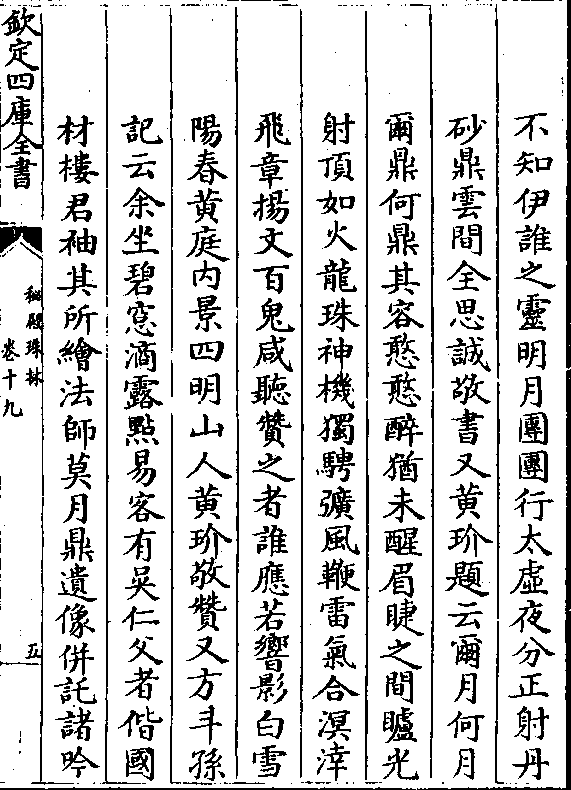 不知伊誰之靈明月團團行太虛夜分正射丹
砂鼎雲間全思誠敬書又黄玠題云爾月何月
爾鼎何鼎其容憨憨醉猶未醒眉睫之間矑光
射頂如火龍珠神機獨騁彍風鞭雷氣合溟涬
飛章揚文百鬼咸聽贊之者誰應若響影白雪
陽春黄庭内景四明山人黄玠敬贊又方斗孫
記云余坐碧窓滴露點易客有吳仁父者偕國
材樓君袖其所繪法師莫月鼎遺像併託諸吟
欽定四庫全書
秘殿珠林
卷十九
五